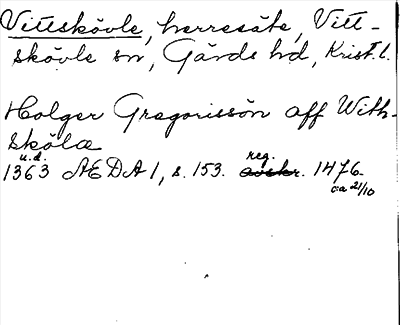 Vittskövle, herresäte, Vitt-
skövle sn, Gärds hd, Krist. l.
Holger Gregorissön aff With-
skölæ
u.d. reg.
1363 AEDA 1, s. 153. avskr. 1476
ca 21/10